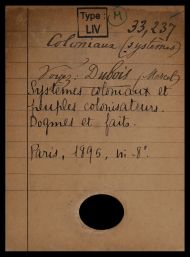 Type:
LIV
M
33,237
Coloniaux (Systèmes)
Voyez: Dubois (Marcel)
Systèmes coloniaux et
peuples colonisateurs.
Dogmes et faits.
Paris, 1895, in-8°.